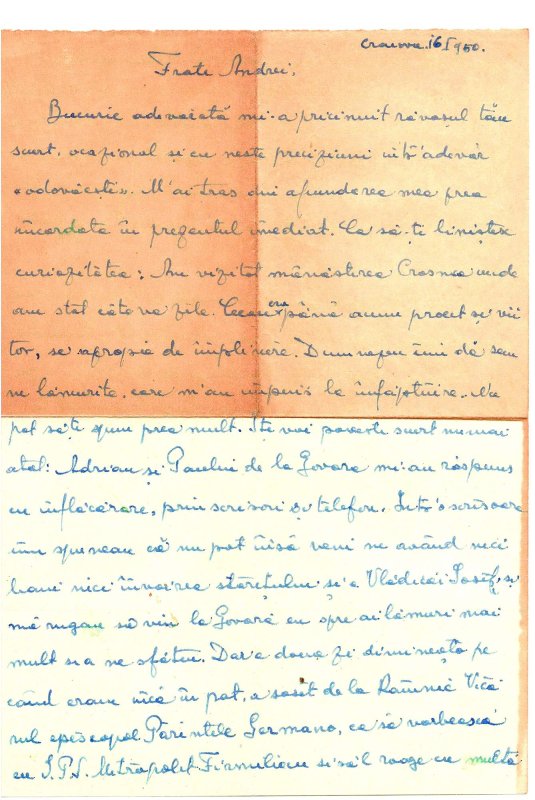 Craiova. 16 I 950.
Frate Andrei,
Bucurie adevarată mi-a pricinuit răvașul tău
scurt, ocazional și cu neste preciziuni într'adevăr
"vodovăești". M'ai tras din afundarea mea prea
încordată în prezentul imediat. Ca să-ți liniștesc
curiozitatea: Am vizitat mănăstirea Crasna unde
am stat câteva zile. Ceeace era până acum proect și vii
tor, se apropia de împlinire. Dumnezeu îmi dă sem
ne lămurite, care m'au împins la înfăptuire. Nu
pot să-ți spun prea mult. Îți voi povesti scurt numai
atât: Adrian și Paulin de la Govora mi-au răspuns
cu înflăcărare, prin scrisori și telefon. Într'o scrisoare
îmi spuneau că nu pot însă veni ne având nici
bani nici învoirea starețului și a Vlădicăi Iosif, și
mă rugau să vin la Govora eu spre a-i lămuri mai
mult și a ne sfătui. Dar a doua zi dimineața pe
când eram încă în pat, a sosit de la Râmnic Vică
rul episcopal Părintele Germano, ca să vorbească
cu I.P.S. Mitropolit Firmilian și să'l roage cu multă